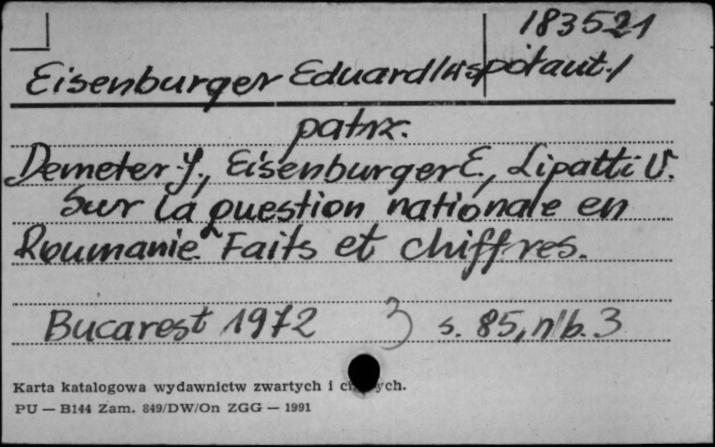 183521
Eisenburger Eduard/współaut./
patrz.
Demeter J., Eisenburger E., Lipatti V.
Sur la question nationale en
Roumanie. Faits et chiffres.
Bucarest 1972 3 s. 85, nlb. 3
Karta katalogowa wydawnictw zwartych i
PU — B144 Zam. 849/DW/On ZGG — 1991